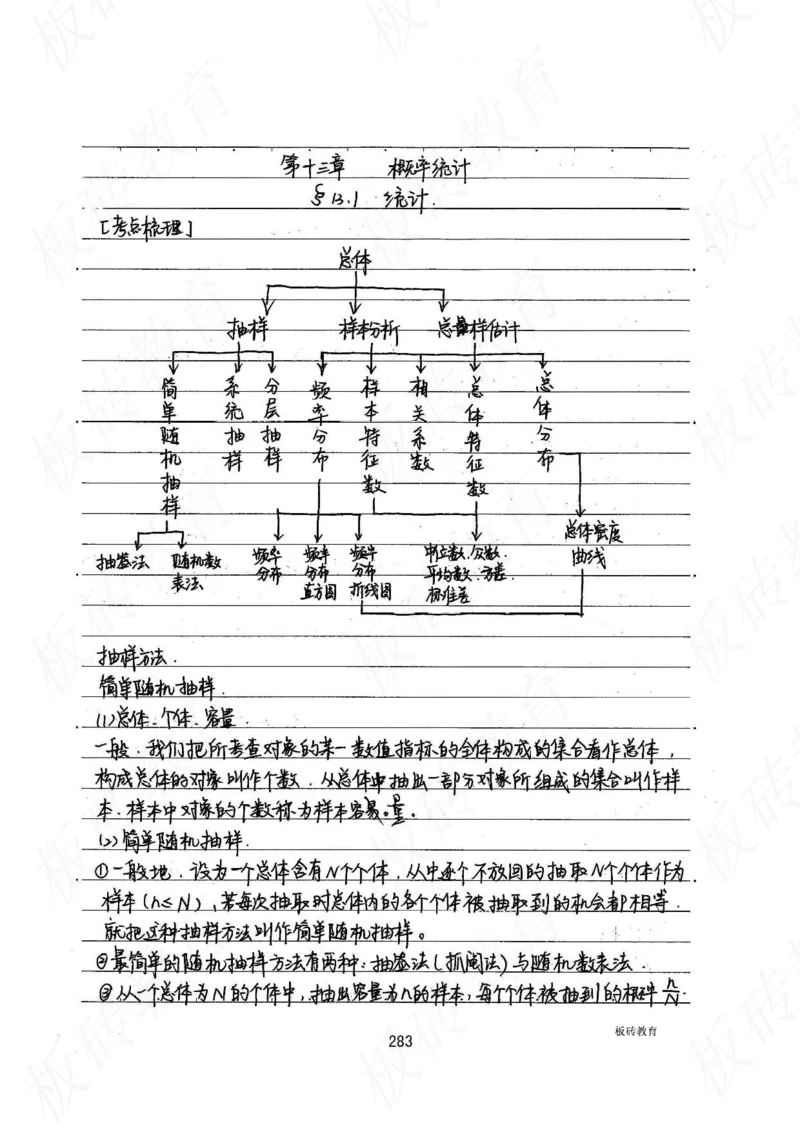 第十三章 概率统计
§13.1 统计.
[考点梳理]
总体
抽样 样本分析 总量样估计
简单随机抽样 系统抽样 分层抽样 频率分布 样本特征数 相关系数 总体特征数 总体分布
抽签法 随机数表法 频率分布 频率分布直方图 频率分布折线图 中位数.众数.平均数.方差.标准差 总体密度曲线
抽样方法.
简单随机抽样.
(1)总体、个体、容量.
一般.我们把所考查对象的某一数值指标的全体构成的集合看作总体,
构成总体的对象叫作个数.从总体中抽出一部分对象所组成的集合叫作样
本.样本中对象的个数称为样本容量。
(2)简单随机抽样.
①一般地.设为一个总体含有N个个体,从中逐个不放回的抽取N个个体作为
样本(n≤N),若每次抽取时总体内的各个个体被抽取到的机会都相等.
就把这种抽样方法叫作简单随机抽样。
②最简单的随机抽样方法有两种:抽签法(抓阄法)与随机数表法.
③从一个总体为N的个体中,抽出容量为n的样本,每个个体被抽到的概率n/N.
板砖教育
283